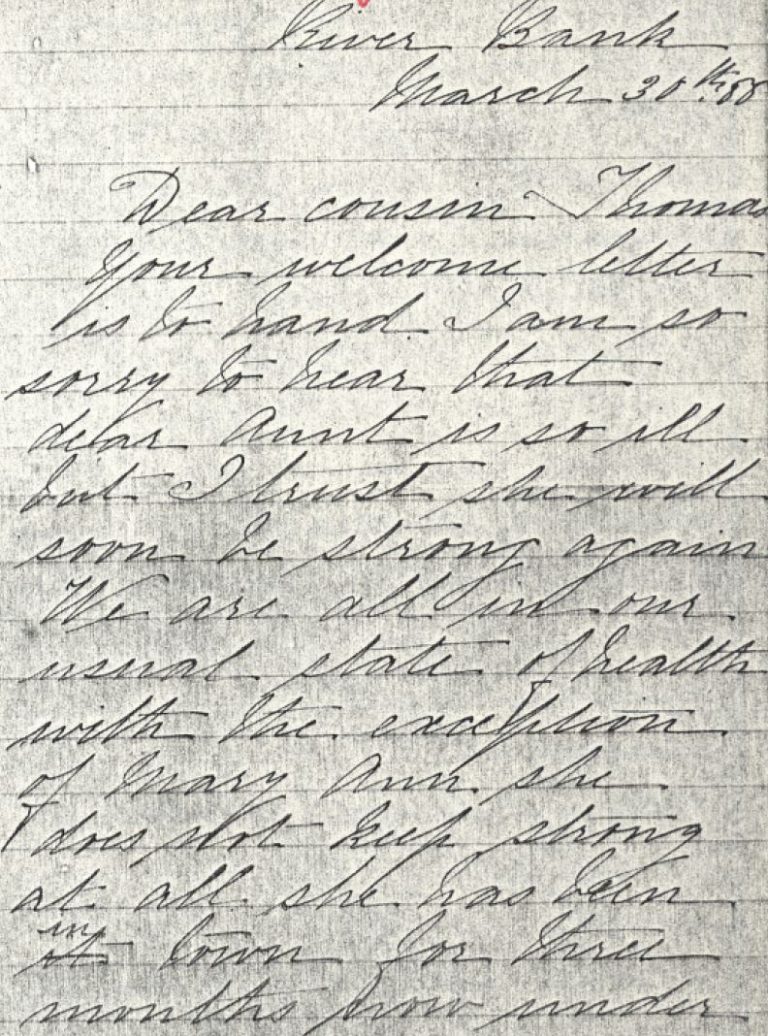 River Bank
March 30th. 88
Dear cousin Thomas
Your welcome letter
is to hand I am so
sorry to hear that
dear Aunt is so ill
but I trust she will
soon be strong again
We are all in our
usual state of health
with the exception
of Mary Ann she
does not keep strong
at all she has been
in town for three
months now under